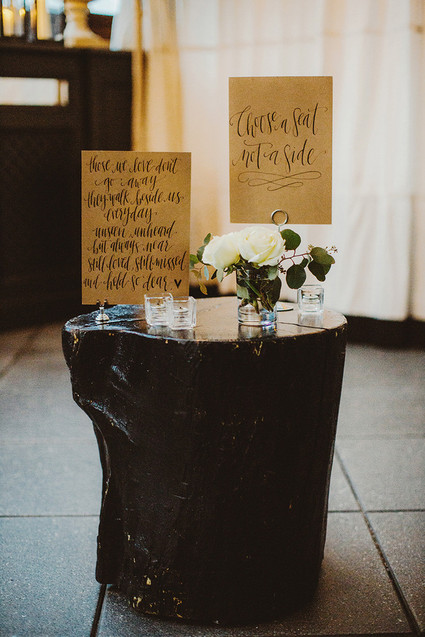 those we love don't
go away
they walk beside us
everyday
unseen unheard
but always near
still loved still missed
and held so dear
Choose a seat
not a side